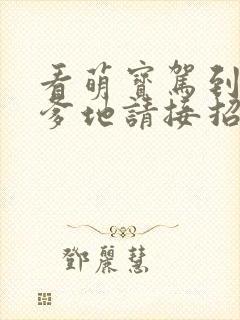 看萌寶駕到
爹地請接招
鄧麗慧